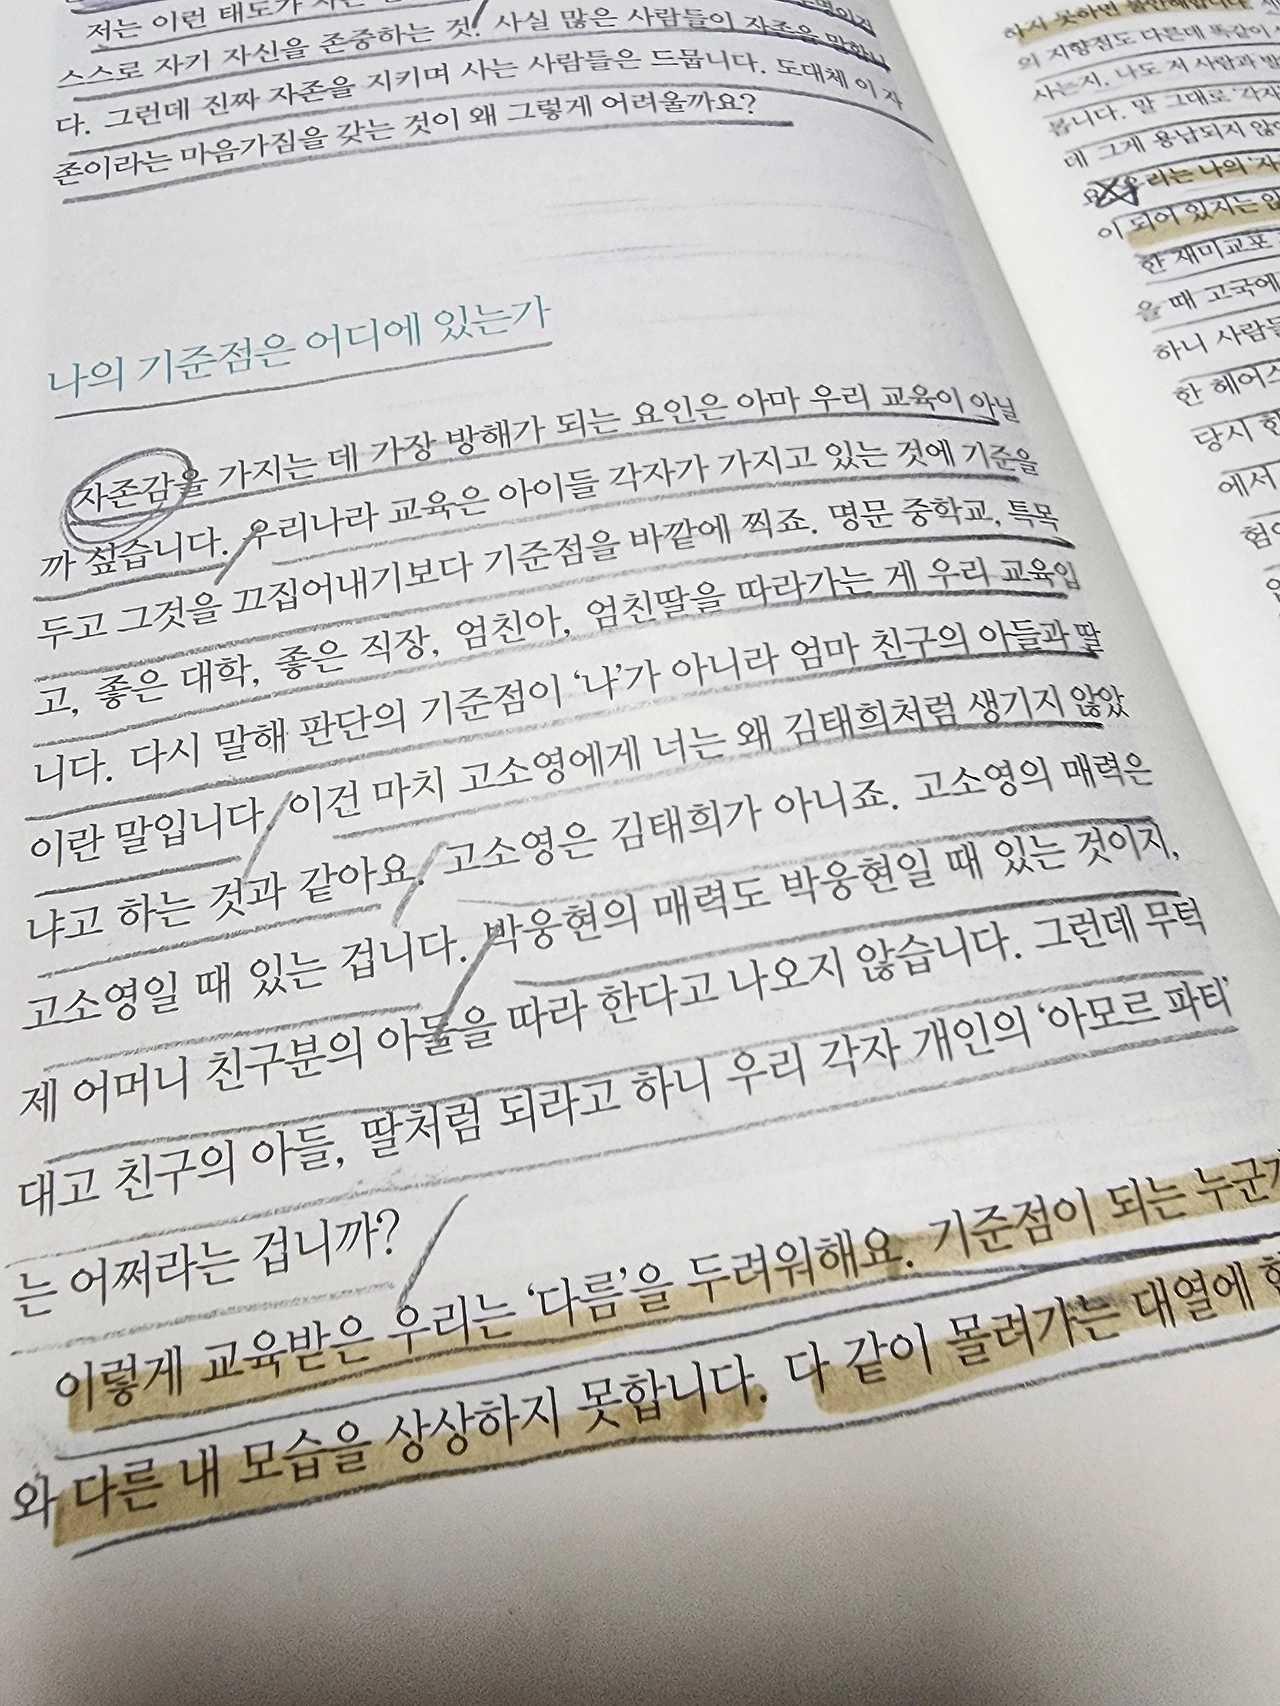 저는 이런 태도가
스스로 자기 자신을 존중하는 것. 사실 많은 사람들이 자존을 말합니
다. 그런데 진짜 자존을 지키며 사는 사람들은 드뭅니다. 도대체 이 자
존이라는 마음가짐을 갖는 것이 왜 그렇게 어려울까요?
나의 기준점은 어디에 있는가
자존감을 가지는 데 가장 방해가 되는 요인은 아마 우리 교육이 아닐
까 싶습니다. 우리나라 교육은 아이들 각자가 가지고 있는 것에 기준을
두고 그것을 끄집어내기보다 기준점을 바깥에 찍죠. 명문 중학교, 특목
고, 좋은 대학, 좋은 직장, 엄친아, 엄친딸을 따라가는 게 우리 교육입
니다. 다시 말해 판단의 기준점이 ‘나’가 아니라 엄마 친구의 아들과 딸
이란 말입니다. 이건 마치 고소영에게 너는 왜 김태희처럼 생기지 않았
냐고 하는 것과 같아요. 고소영은 김태희가 아니죠. 고소영의 매력은
고소영일 때 있는 겁니다. 박웅현의 매력도 박웅현일 때 있는 것이지,
제 어머니 친구분의 아들을 따라 한다고 나오지 않습니다. 그런데 무턱
대고 친구의 아들, 딸처럼 되라고 하니 우리 각자 개인의 ‘아모르 파티’
는 어쩌라는 겁니까?
이렇게 교육받은 우리는 ‘다름’을 두려워해요. 기준점이 되는 누군가
와 다른 내 모습을 상상하지 못합니다. 다 같이 몰려가는 대열에
하지 못하면 불안해합니다.
의 지향점도 다른데 똑같이
사는지. 나도 저 사람과
봅니다. 말 그대로 각자
데 그게 용납되지
우리는 나의
이 되어 있지는
한 재미교포
을 때 고국에
하니 사람들
한 헤어스
당시 한
에서